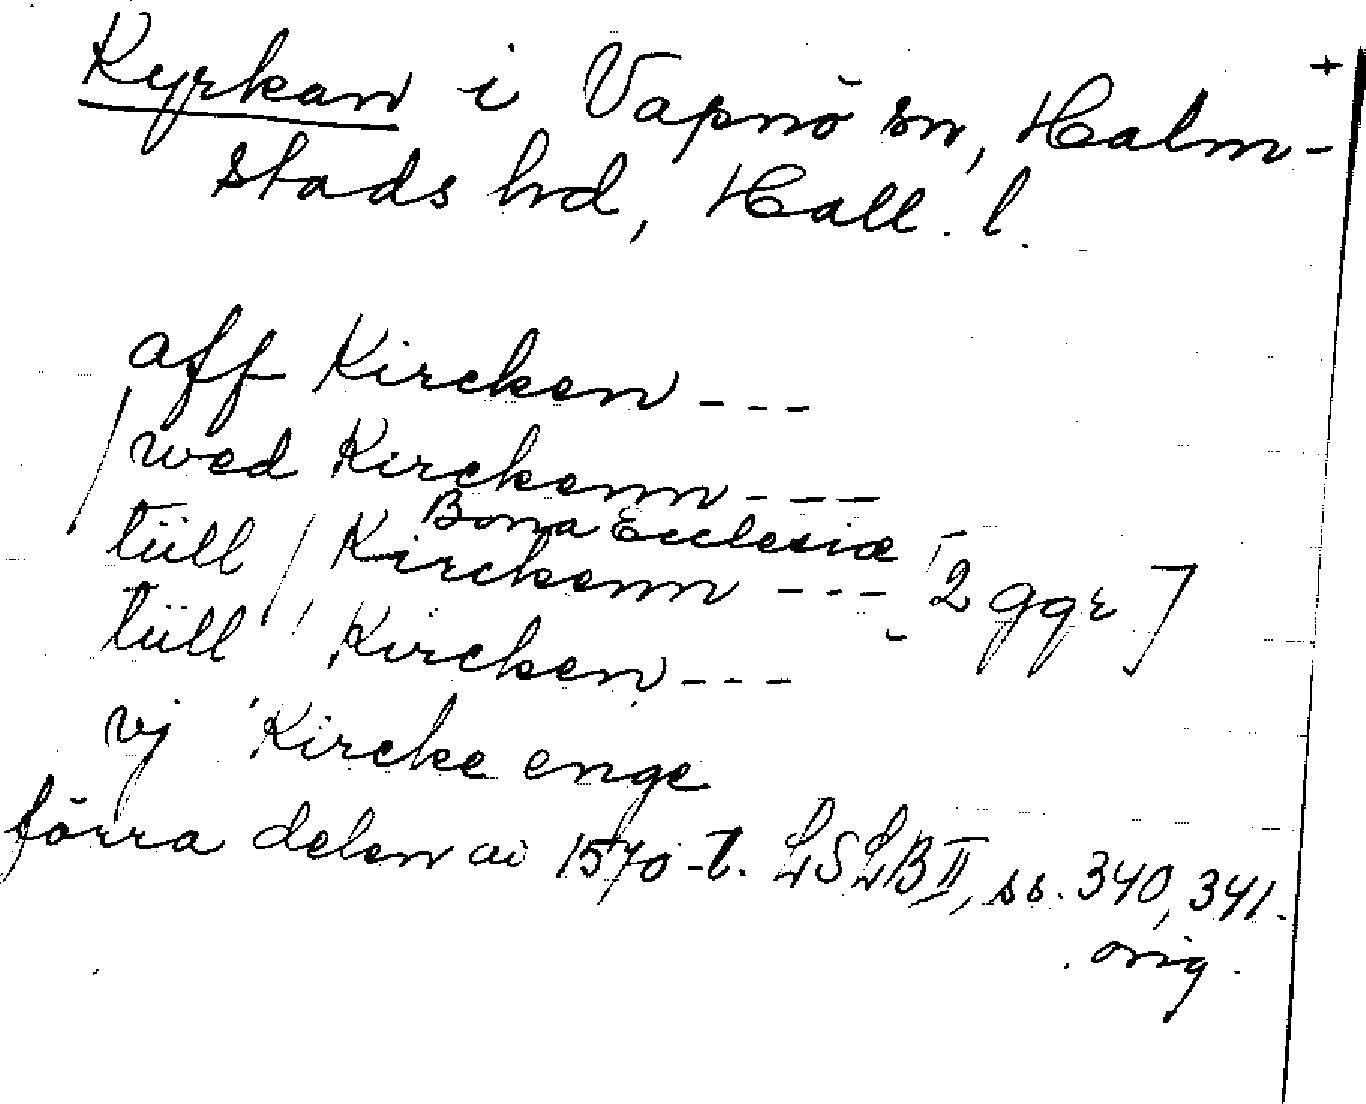 +
Kyrkan i Vapnö sn, Halm-
stads hd, Hall. l.
aff Kircken ---
/ wed Kirckenn ---
Bona Ecclesiæ
tüll / Kirckenn --- [2 ggr]
tüll Kircken ---
vj Kircke enge
förra delen av 1570-t. LSLB II, ss. 340, 341.
orig.